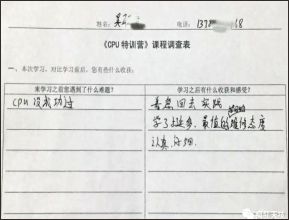 姓名: 电话: 137 68
《CPU 特训营》课程调查表
一、本次学习,对比学习前后,您有些什么收获:
来学习之前您遇到了什么难题? 学习之后有什么收获和感受?
CPU 没成功过 善意回去实践
学了好多,最值的 态度
认真,仔细.